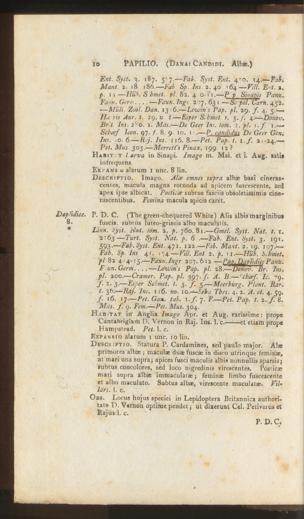 10 PAPILIO. (DANAI CANDIDI. Albæ.)
Ent. Syst. 3. 187. 5 7.—Fab. Syst. Ent. 4 0. 14.—Fab.
Mant. 2. 18 186.—Fab Sp. Ins. 2. 40 164—Vill. Ent. 2.
p. 13—Hüb. Schmet. pl. 82. 4 0. 11.—P p. Sinapis Panz.
Faun. Germ. . . . —Faun. Ingr. 207. 631—Scopol. Carn. 452.
—Müll. Zool. Dan. 13 6.—Lewin's Pap. pl. 29. f. 4. 5—
Bril. Ins. 2 0. 1. Mas.—De Geer Ins. tom. 1. pl. 1. f 1.—
Schæf Icon. 97. f. 8. 9. 10. 1 .—P. candidus De Geer Gen.
Ins. 0. 6.—Raj. Ins. 116. 8.—Pet. Pap. t. 1. f. 21-24.—
Pet. Mus 305.—Merrett's Pinax. 199 12 ?
HABITAT Larva in Sinapi. Imago m. Mai. et i. Aug. satis
infrequens
EXPANSIO alarum 1 unc. 8 lin.
DESCRIPTIO. Imago. Alæ omnes supra albæ basi cineras-
centes, macula magna rotunda ad apicem fuscescente, sed
apex ipse albicat. Posticæ subtus fasciis obsoletissimis cine-
rascentibus. Femina macula apicis caret.
Daplidice. 8. *
P. D. C. (The green-chequered White) Alis albis marginibus
fuscis. subtus luteo-griseis albo maculatis.
Linn. Syst. Nat. tom. 2. p. 760. 81.—Gmel. Syst. Nat. t. 1.
2263 —Turt. Syst. Nat. p. 6 —Fab. Ent. Syst. 3. 191.
593.—Fab. Syst. Ent. 471. 122.—Fab. Mant. 2. 19. 197.—
Fab. Sp. Ins 41. 174 —Vill Ent 2. p. 11.—Hüb. Schmet.
pl 82 4 4 15.—Faun. Ingr 207. 612 —Pap. Daplidice Panz.
Faun. Germ. . . . —Lewin's Pap. pl. 28.—Donov. Br. Ins.
pl. 200.—Cramer. Pap. pl. 397. f. A. B.—
f. 2. 3.—Esper Schmet. 1. 3. f. 5.—
t. 36.—Raj. Ins. 116. no. 10.—
f. 16. 17.—Pet. Gaz. tab. 1. f. 7. F.—Pet Pap. t. 2. f. 8.
Mas. f. 9. Fem.—Pet. Mus. 304.
HABITAT in Anglia Imago Apr. et Aug. rarissime: prope
Cantabrigiam D. Vernon in Raj. Ins. l. c.——et etiam prope
Hampstead. Pet. l. c.
EXPANSIO alarum 1 unc. 10 lin.
DESCRIPTIO. Statura P. Cardamines, sed paulo major. Alæ
primores albæ; maculæ duæ fuscæ in disco utrinque feminæ,
at mari una supra; apices fusci maculis albis nonnullis sparsis;
subtus concolores, sed loco nigredinis virescentes. Posticæ
mari supra albæ immaculatæ; feminæ limbo fuscescente
et albo maculato. Subtus albæ, virescente maculatæ. Vil-
lars. l. c.
OBS. Locus hujus speciei in Lepidoptera Britannica authori-
tate D. Vernon optime pendet; ut dixerunt Cel. Petiverus et
Rajus l. c.
P. D. C.